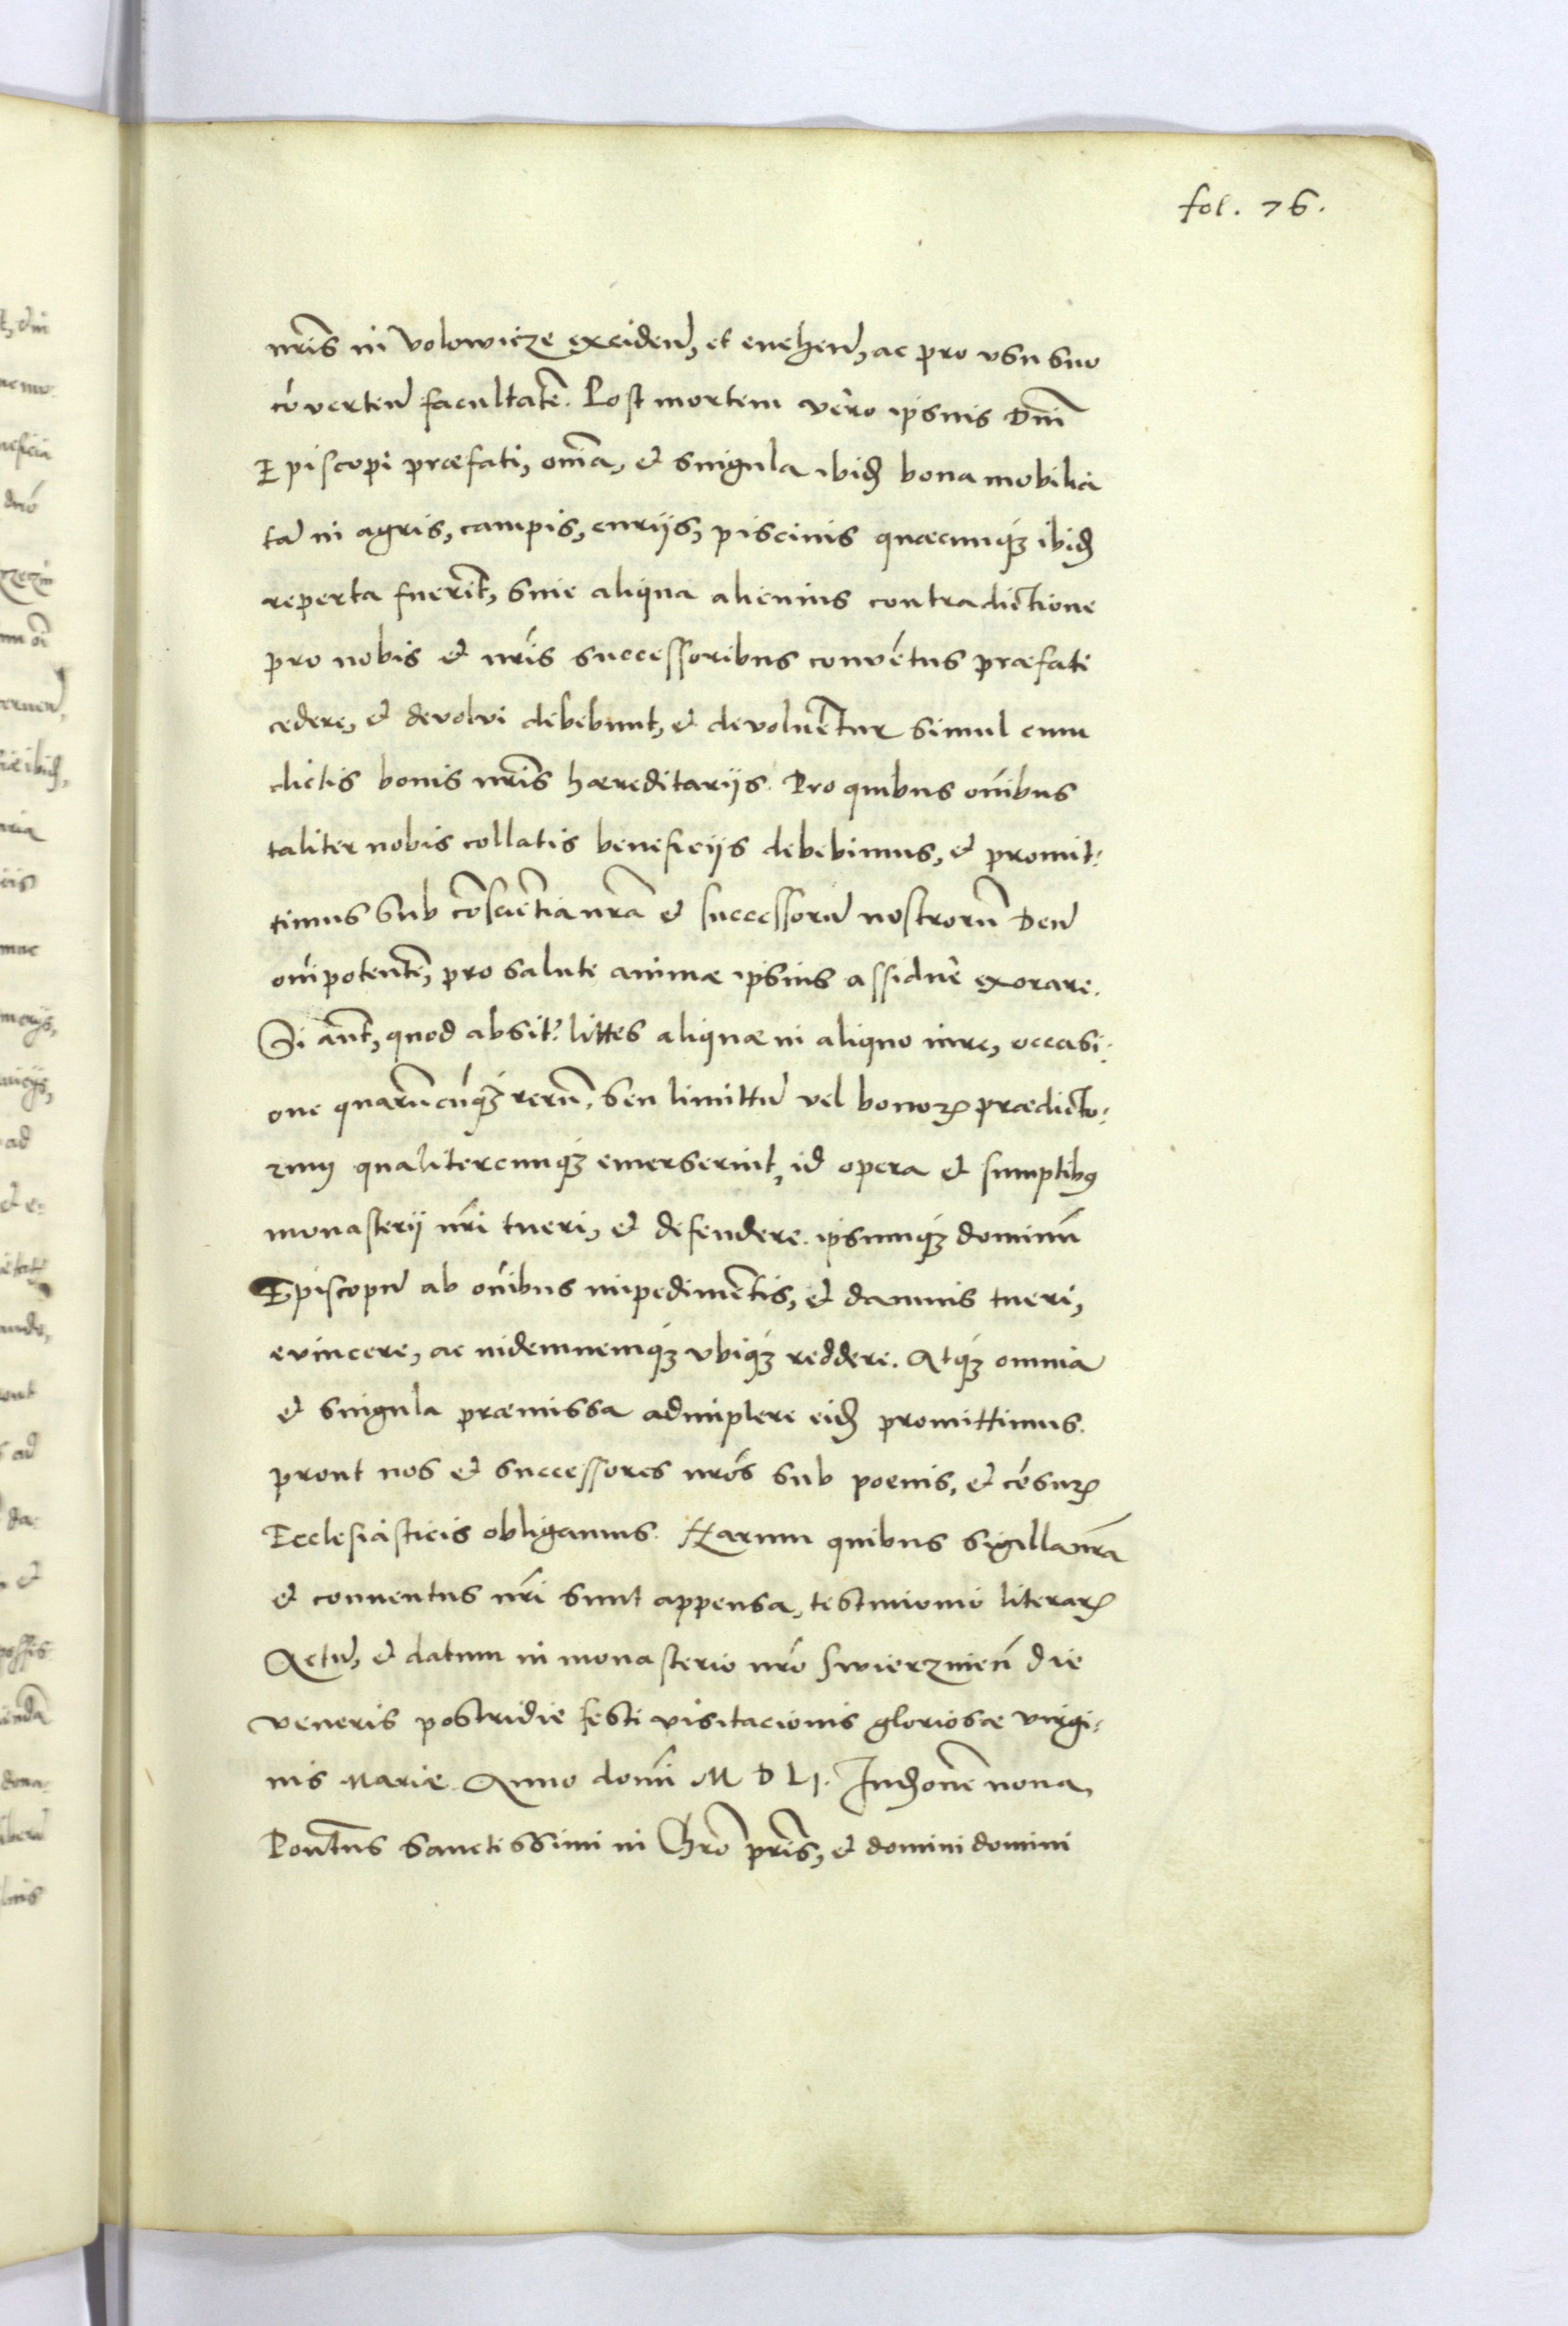 fol. 76.
nr̃is in Volowicze exciden̄, et evehen̄, ac pro vsu suo
cōverten̄ facultatē. Post mortem vero ipsius Dn̄i
Episcopi præfati, oīa, et singula ibidē bona mobilia
tā in agris, campis, curiis, piscinis quæcunqȝ ibidē
reperta fuerīt, sine aliqua alicuius contradictione
pro nobis et nr̃is successoribus convētus præfati
cedere, et devolvi debebunt, et devoluētur simul cum
dictis bonis nr̃is hæreditariis. Pro quibus oībus
taliter nobis collatis beneficiis debebimus, et promit:
timus sub cōscīētia nr̃a et successorū nostrorū Deū
oīpotentē, pro salute animæ ipsius assidue exorare.
Si aūt, quod absit: littes aliquæ in aliquo iure, occasi:
one quarūcūqȝ rerū, seu limittū vel bonoꝝ prædicto:
rum qualitercunqȝ emerserint, id opera et sumptibꝰ
monasterii nr̃i tueri, et defendere. ipsumqȝ dominū
Episcopū ab oībus impedimētis, et damnis tueri,
evincere, ac indemnemqȝ vbiqȝ reddere. Atqȝ omnia
et singula præmissa adimplere eidē promittimus.
prout nos et successores nr̃os sub poenis, et cēsuꝝ
Ecclesiasticis obligamus. Harum quibus sigilla nr̃a
et conuentus nr̃i sunt appensa, testimonio literaꝝ
Actū, et datum in monasterio nr̃o Swierzinen̄ die
veneris postridie festi visitacionis gloriosæ virgi:
nis Mariæ Anno domī M D LI. Indȝone nona,
Pont̄us Sanctissimi in Chr̃o pr̃is, et domini domini